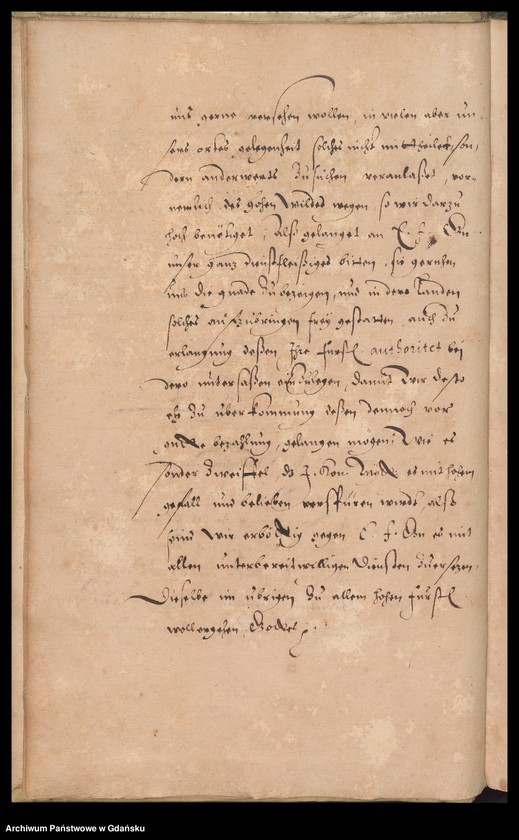 uns gerne versehen wollen, in vielen aber un-
sers ortes gelegenheit solches nicht mittheilet, son,
dern anderwerts zu suchen veranlaßet, vor-
nemlich des hohen Wildes wegen, so wir darzu
hoch benötiget, Alß gelanget an E. f. Gn
unser ganz dienstfleißiges bitten, sie geruhen
uns die gnade zu bezeigen, und in dero Landen
solches aufzubringen frey gestatten, auch zu
erlangung deßen, Ihre fürstl authoritet bei
dero untersaßen einzulegen, damit wir desto
ehe zu überkommung deßen dennoch vor
bezahlung, gelangen mögen, Wie es
sonder zweiffel J. Kön. es mit hohem
gefall und belieben verspüren wirdt, alß
sein wir erböttig gegen E. f. Gn es mit
allen unterbereitwilligen Diensten zuersezen,
Dieselbe im übrigen zu allem hohen fürstl
wollergehen, Gottes